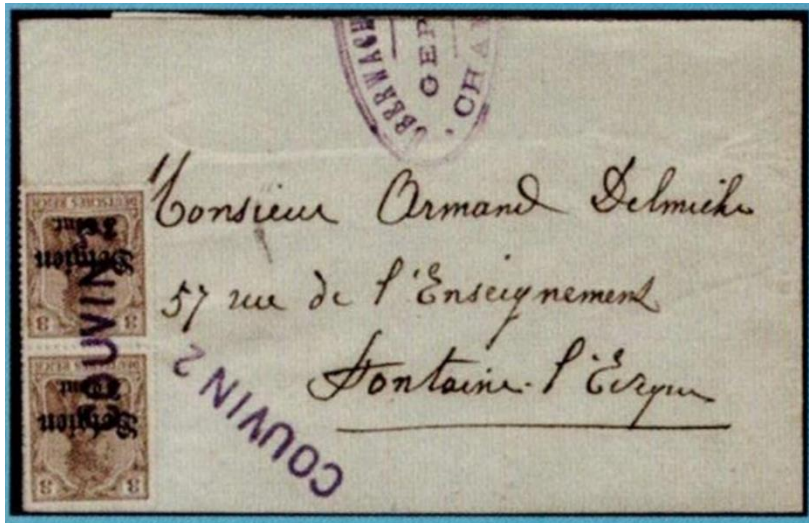 ÜBERWACH
GEP
CHA
Monsieur Armand Delmiche
57 rue de l'Enseignement
Fontaine-l'Evêque
COUVIN 2
OUVIN
DEUTSCHES REICH
3 Cent.
Belgien
3 3
DEUTSCHES REICH
3 Cent.
Belgien
3 3